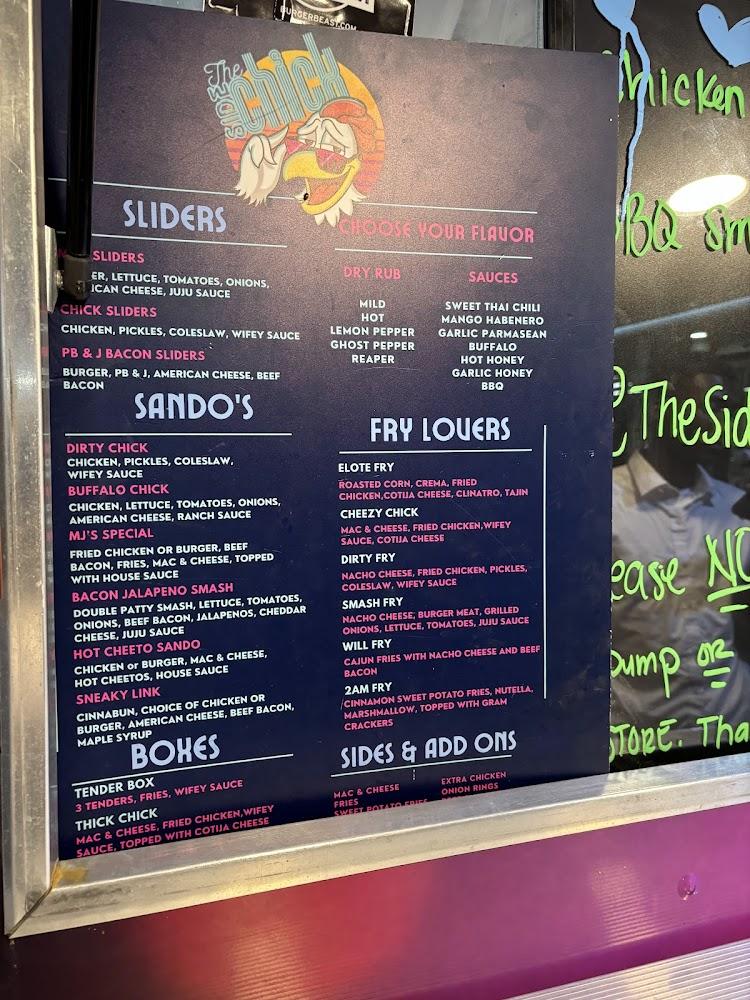 BURGERBEAST.COM
The
SIDE
chick
SLIDERS
SLIDERS
LETTUCE, TOMATOES, ONIONS,
CHEESE, JUJU SAUCE
CHICK SLIDERS
CHICKEN, PICKLES, COLESLAW, WIFEY SAUCE
PB & J BACON SLIDERS
BURGER, PB & J, AMERICAN CHEESE, BEEF
BACON
CHOOSE YOUR FLAVOR
DRY RUB
MILD
HOT
LEMON PEPPER
GHOST PEPPER
REAPER
SAUCES
SWEET THAI CHILI
MANGO HABENERO
GARLIC PARMASEAN
BUFFALO
HOT HONEY
GARLIC HONEY
BBQ
SANDO'S
DIRTY CHICK
CHICKEN, PICKLES, COLESLAW,
WIFEY SAUCE
BUFFALO CHICK
CHICKEN, LETTUCE, TOMATOES, ONIONS,
AMERICAN CHEESE, RANCH SAUCE
MJ'S SPECIAL
FRIED CHICKEN OR BURGER, BEEF
BACON, FRIES, MAC & CHEESE, TOPPED
WITH HOUSE SAUCE
BACON JALAPENO SMASH
DOUBLE PATTY SMASH, LETTUCE, TOMATOES,
ONIONS, BEEF BACON, JALAPENOS, CHEDDAR
CHEESE, JUJU SAUCE
HOT CHEETO SANDO
CHICKEN or BURGER, MAC & CHEESE,
HOT CHEETOS, HOUSE SAUCE
SNEAKY LINK
CINNABUN, CHOICE OF CHICKEN OR
BURGER, AMERICAN CHEESE, BEEF BACON,
MAPLE SYRUP
FRY LOVERS
ELOTE FRY
ROASTED CORN, CREMA, FRIED
CHICKEN,COTIJA CHEESE, CLINATRO, TAJIN
CHEEZY CHICK
MAC & CHEESE, FRIED CHICKEN,WIFEY
SAUCE, COTIJA CHEESE
DIRTY FRY
NACHO CHEESE, FRIED CHICKEN, PICKLES,
COLESLAW, WIFEY SAUCE
SMASH FRY
NACHO CHEESE, BURGER MEAT, GRILLED
ONIONS, LETTUCE, TOMATOES, JUJU SAUCE
WILL FRY
CAJUN FRIES WITH NACHO CHEESE AND BEEF
BACON
2AM FRY
CINNAMON SWEET POTATO FRIES, NUTELLA,
MARSHMALLOW, TOPPED WITH GRAM
CRACKERS
BOXES
TENDER BOX
3 TENDERS, FRIES, WIFEY SAUCE
THICK CHICK
MAC & CHEESE, FRIED CHICKEN,WIFEY
SAUCE, TOPPED WITH COTIJA CHEESE
SIDES & ADD ONS
MAC & CHEESE
FRIES
SWEET POTATO FRIES
EXTRA CHICKEN
ONION RINGS
Chicken
BBQ Sm
@TheSid
ease NO
pump OR
STORE. Tha